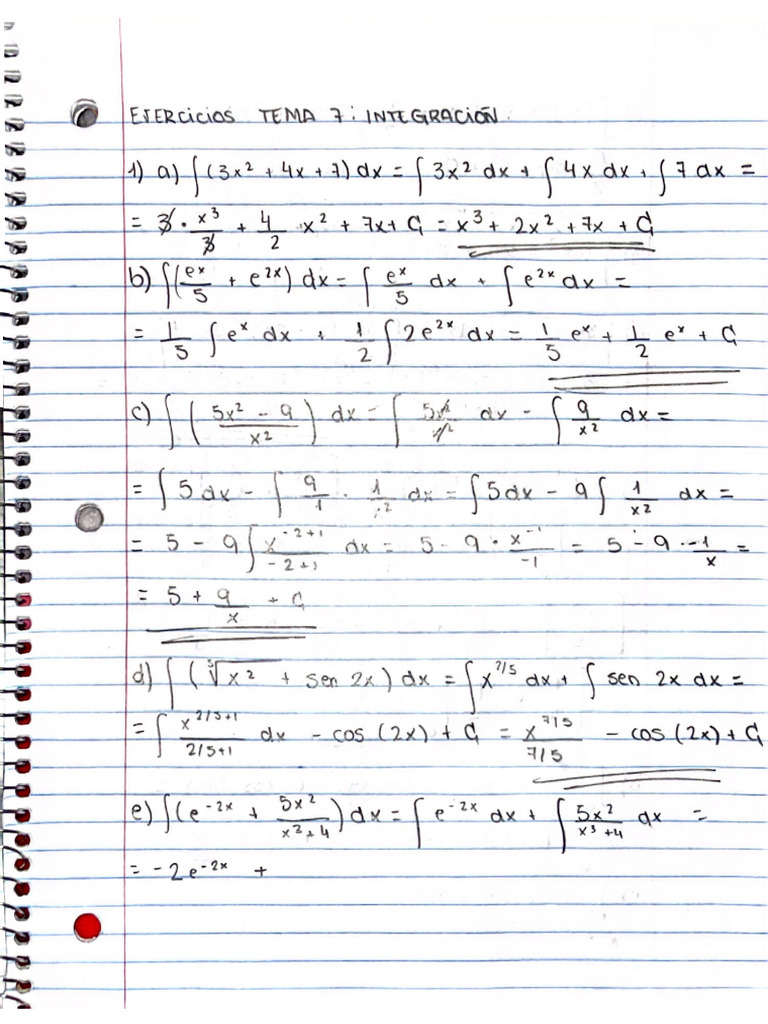 EJERCICIOS TEMA 7: INTEGRACIÓN.
1) a) ∫(3x² + 4x + 7) dx = ∫ 3x² dx + ∫ 4x dx + ∫ 7 dx =
= 3 · x³/3 + 4/2 x² + 7x + C = x³ + 2x² + 7x + C
b) ∫(eˣ/5 + e²ˣ) dx = ∫ eˣ/5 dx + ∫ e²ˣ dx =
= 1/5 ∫ eˣ dx + 1/2 ∫ 2e²ˣ dx = 1/5 eˣ + 1/2 eˣ + C
c) ∫ ( (5x² - 9)/x² ) dx = ∫ 5x²/x² dx - ∫ 9/x² dx =
= ∫ 5 dx - ∫ 9/1 · 1/x² dx = ∫ 5 dx - 9 ∫ 1/x² dx =
= 5 - 9 ∫ x^(-2+1)/(-2+1) dx = 5 - 9 · x⁻¹/-1 = 5 - 9 · -1/x =
= 5 + 9/x + C
d) ∫ (⁵√x² + sen 2x) dx = ∫ x^(2/5) dx + ∫ sen 2x dx =
= ∫ x^(2/5+1)/(2/5+1) dx - cos (2x) + C = x^(7/5)/(7/5) - cos (2x) + C
e) ∫(e^(-2x) + 5x²/(x²+4)) dx = ∫ e^(-2x) dx + ∫ 5x²/(x³+4) dx =
= -2e^(-2x) +